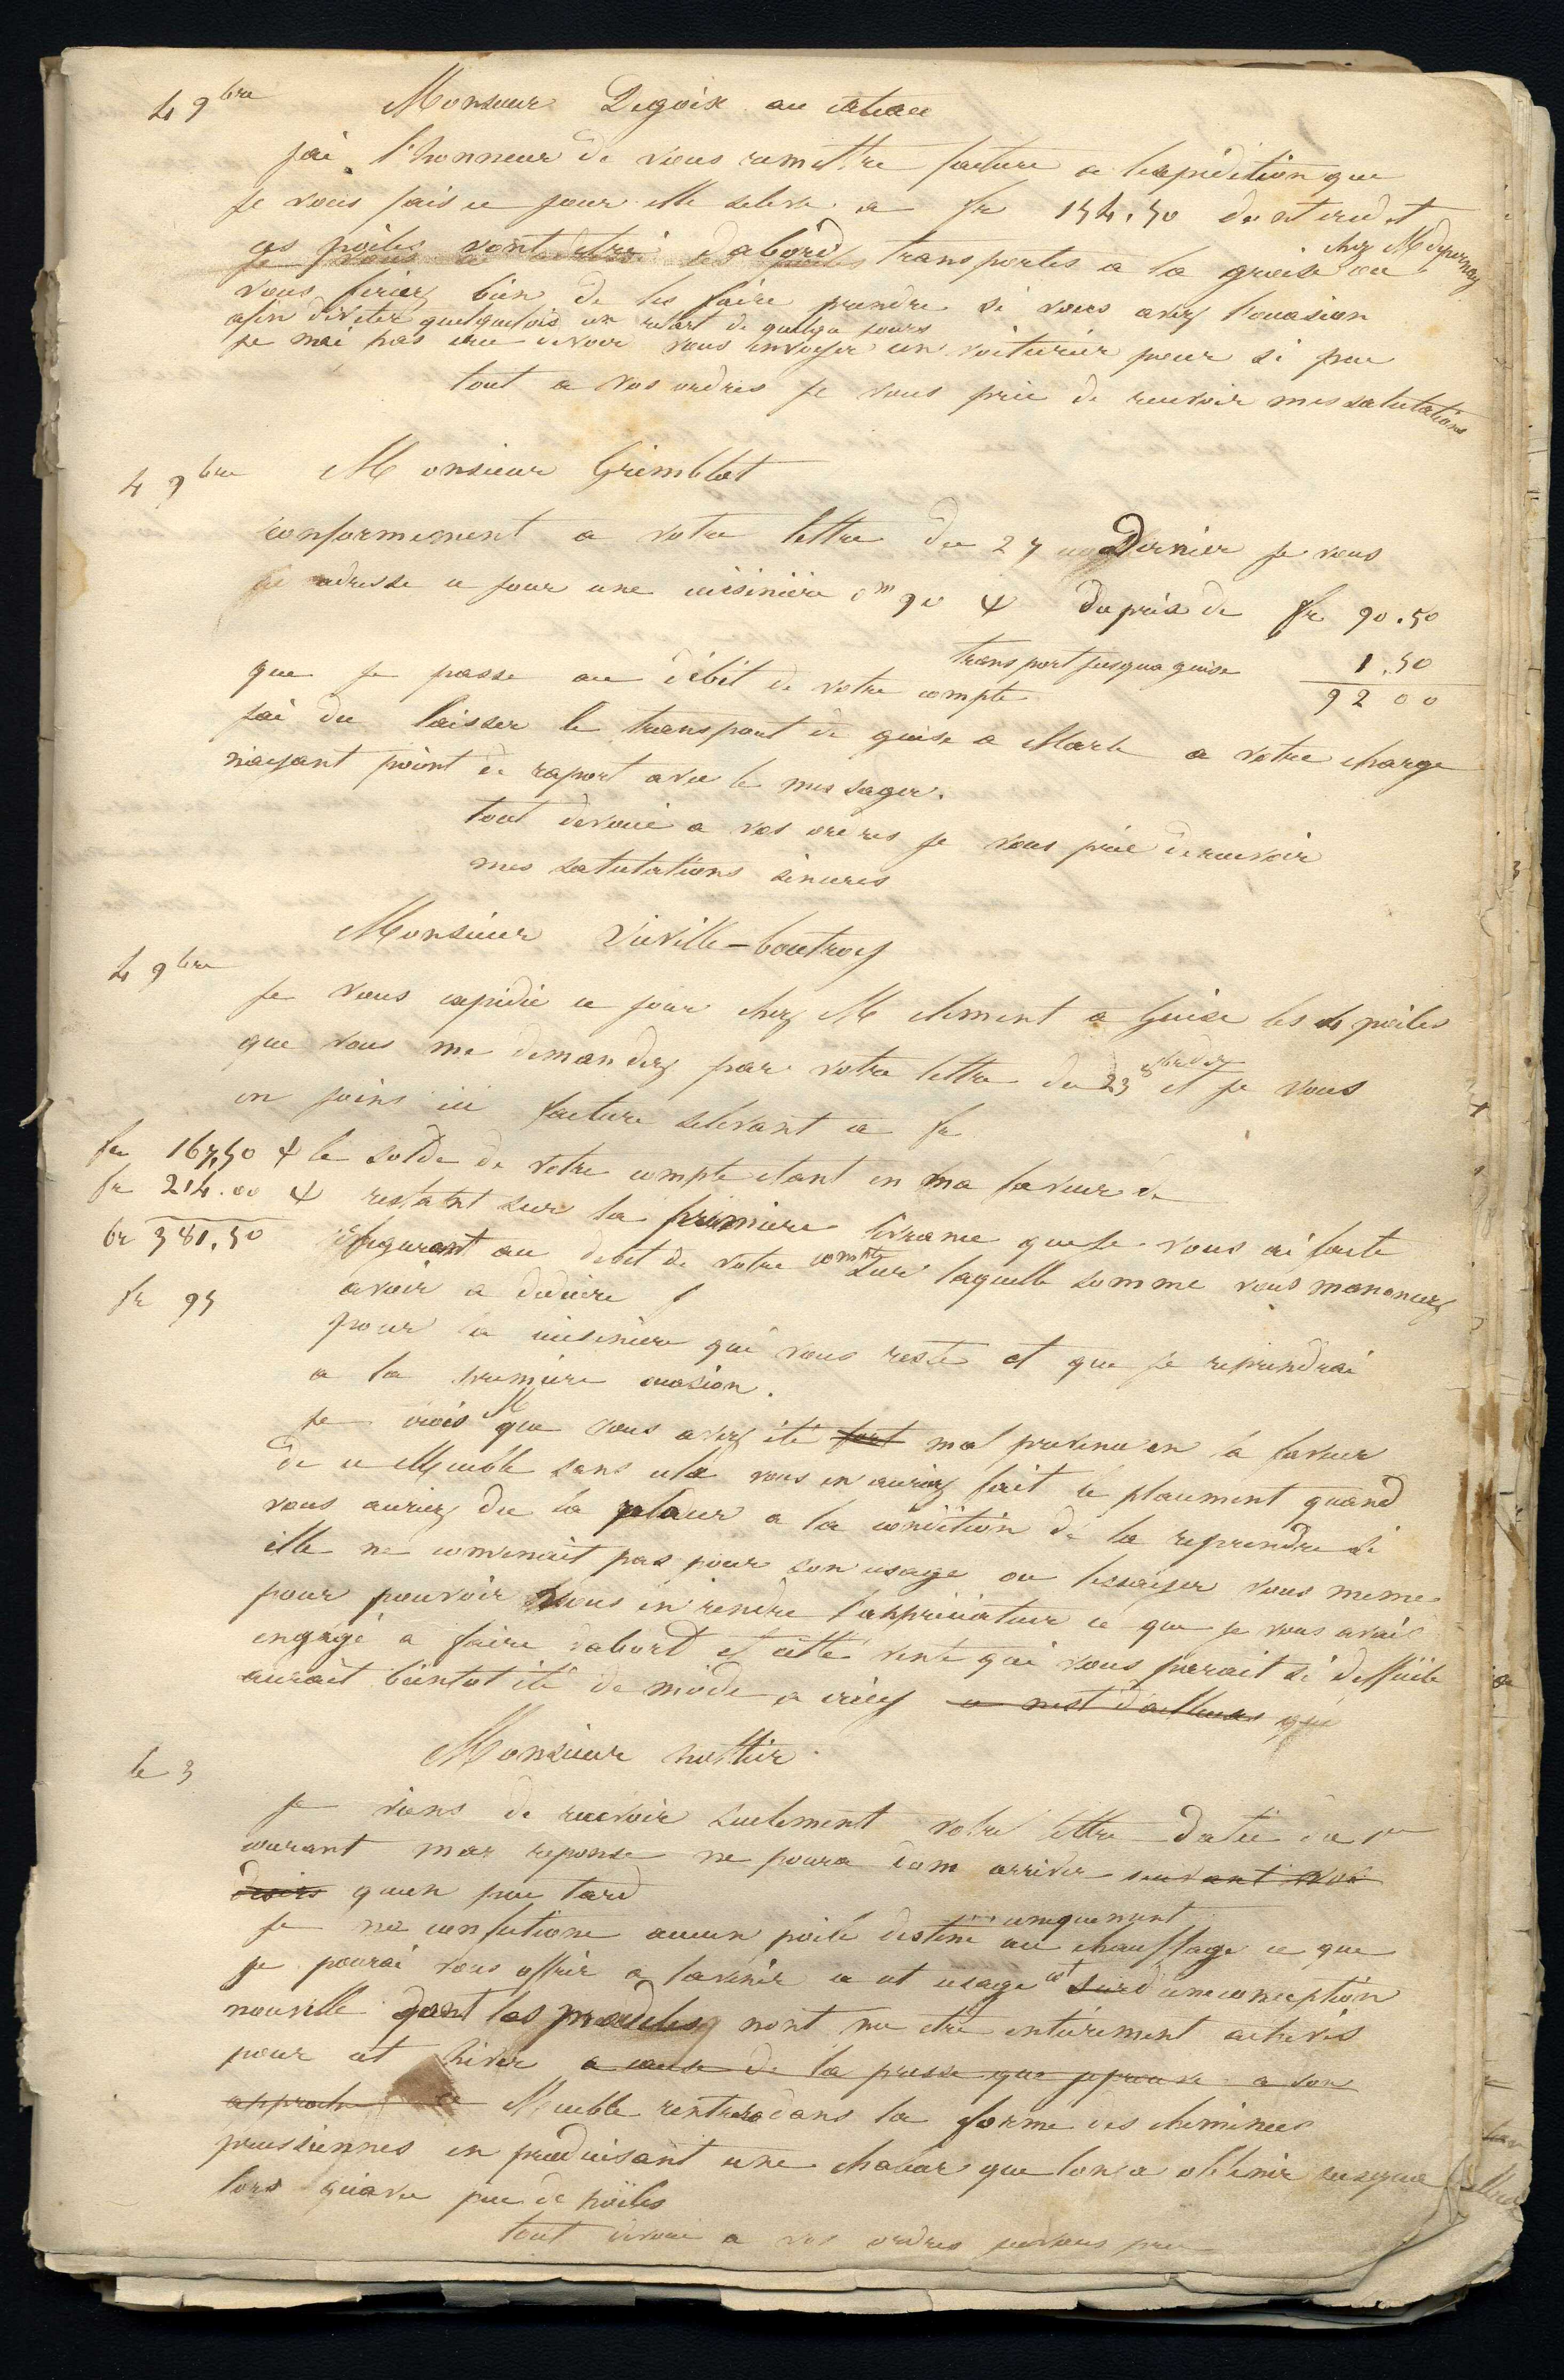 4 9bre Monsieur Degoix au cateau
jai l'honneur de vous remettre facture a lexpédition que
je vous fais ce jour elle seleve a fr 154.50 dont crédit
ces poiles vont etre dabord transportes a la groise ou
chez M depernay
vous feriez bien de les faire prendre si vous avez locasion
afin deviter quelquefois un retart de quelque jours
je nai pas cru devoir vous envoyer un voiturier pour si peu
tout a vos ordres je vous prie de recevoir mes salutations
4 9bre Monsieur Grimblot
conformement a votre lettre du 27 Dernier je vous
adresse ce jour une cuisinière 0m90 du prix de fr 90.50
transport jusqua guise 1.50
que je passe au débit de votre compte 92 00
jai du laisser le transport de guise a Marle a votre charge
nayant point de raport avec le messager.
tout devoué a vos ordres je vous prie de recevoir
mes salutations sinceres
4 9bre Monsieur Viéville-boutroy
je vous expédie ce jour chez M clement a Guise les 4 poiles
que vous me demandez par votre lettre du 23 8bre der et je vous
en joins ici facture selevant a fr
fr 167,50 le solde de votre compte etant en ma faveur de
fr 214.00 restant sur la première livrance que je vous ai faite
fr 381,50 figurant au debit de votre compte sur laquelle somme vous manoncez
fr 95 avoir a deduire
pour la cuisiniere qui vous reste et que je reprendrai
a la premiere ocasion.
je crois M que vous avez été fort mal prevenu en la faveur
de ce Meuble sans cela vous en auriez fait le placement quand
vous auriez du la placer a la condition de la reprendre si
elle ne convenait pas pour son usage ou lessaiyer vous meme
pour pouvoir vous en rendre lappreciateur ce que je vous avais
engagé a faire dabord et cette vente qui vous parait si deffícile
aurait bientot été de mode a crécy ce nest dailleurs que
le 3 Monsieur
je viens de recevoir seulement votre lettre datée du 1er
courant mar reponse ne poura donc arriver suivant vos
desirs quun peu tard
je ne confectione aucun poile destiné uniquement au chauffage ce que
je pourai vous offrir a lavenir a cet usage est sur dune conception
nouvelle dont les modeles nont pu etre entierement achevés
pour cet hiver a cause de la presse que jeprouve a son
approche ce Meuble rentrera dans la forme des cheminees
prussiennes en produisant une chaleur que lon a obtenir jusqua
lors quavec peu de poiles
tout devoué a vos ordres je vous prie